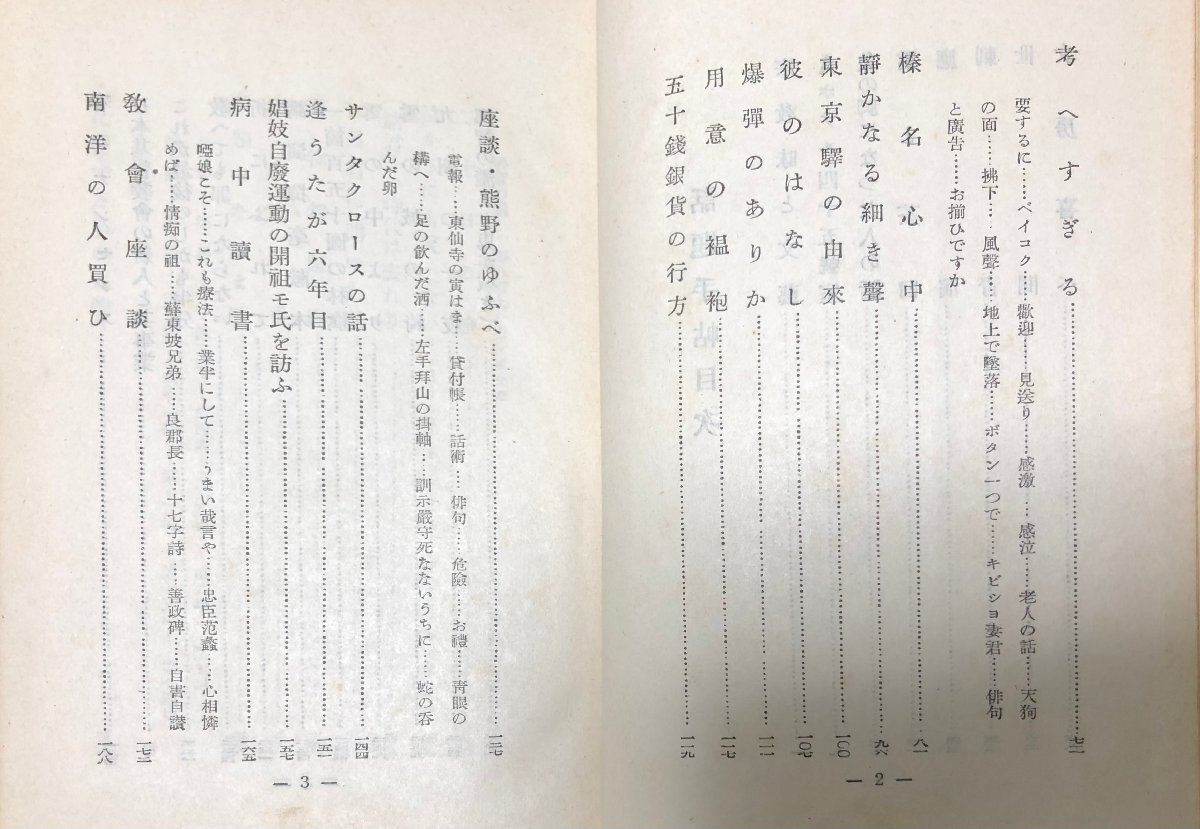 考へすぎる……七二
要するに……ベイコク……歡迎……見送り……感激……感泣……老人の話……天狗
の面……拂下……風聲……地上で墜落……ボタン一つで……キビシヨ妻君……俳句
と廣告……お揃ひですか
榛名心中……八一
靜かなる細き聲……九六
東京驛の由來……一〇〇
彼のはなし……一〇七
爆彈のありか……一一一
用意の褞袍……一一七
五十錢銀貨の行方……一一九
— 2 —
座談・熊野のゆふべ……一二七
電報……東仙寺の寅はま……貸付帳……話術……俳句……危險……お禮……靑眼の
構へ……足の飮んだ酒……左手拜山の掛軸……訓示嚴守死なないうちに……蛇の呑
んだ卵
サンタクロースの話……一四四
逢うたが六年目……一五一
娼妓自廢運動の開祖モ氏を訪ふ……一五七
病中讀書……一六五
啞娘こそ……これも療法……業半にして……うまい哉言や……忠臣范蠡……心相憐
めば……情痴の祖……蘇東坡兄弟……良郡長……十七字詩……善政碑……自書自讃
敎會座談……一七三
南洋の人買ひ……一八八
— 3 —